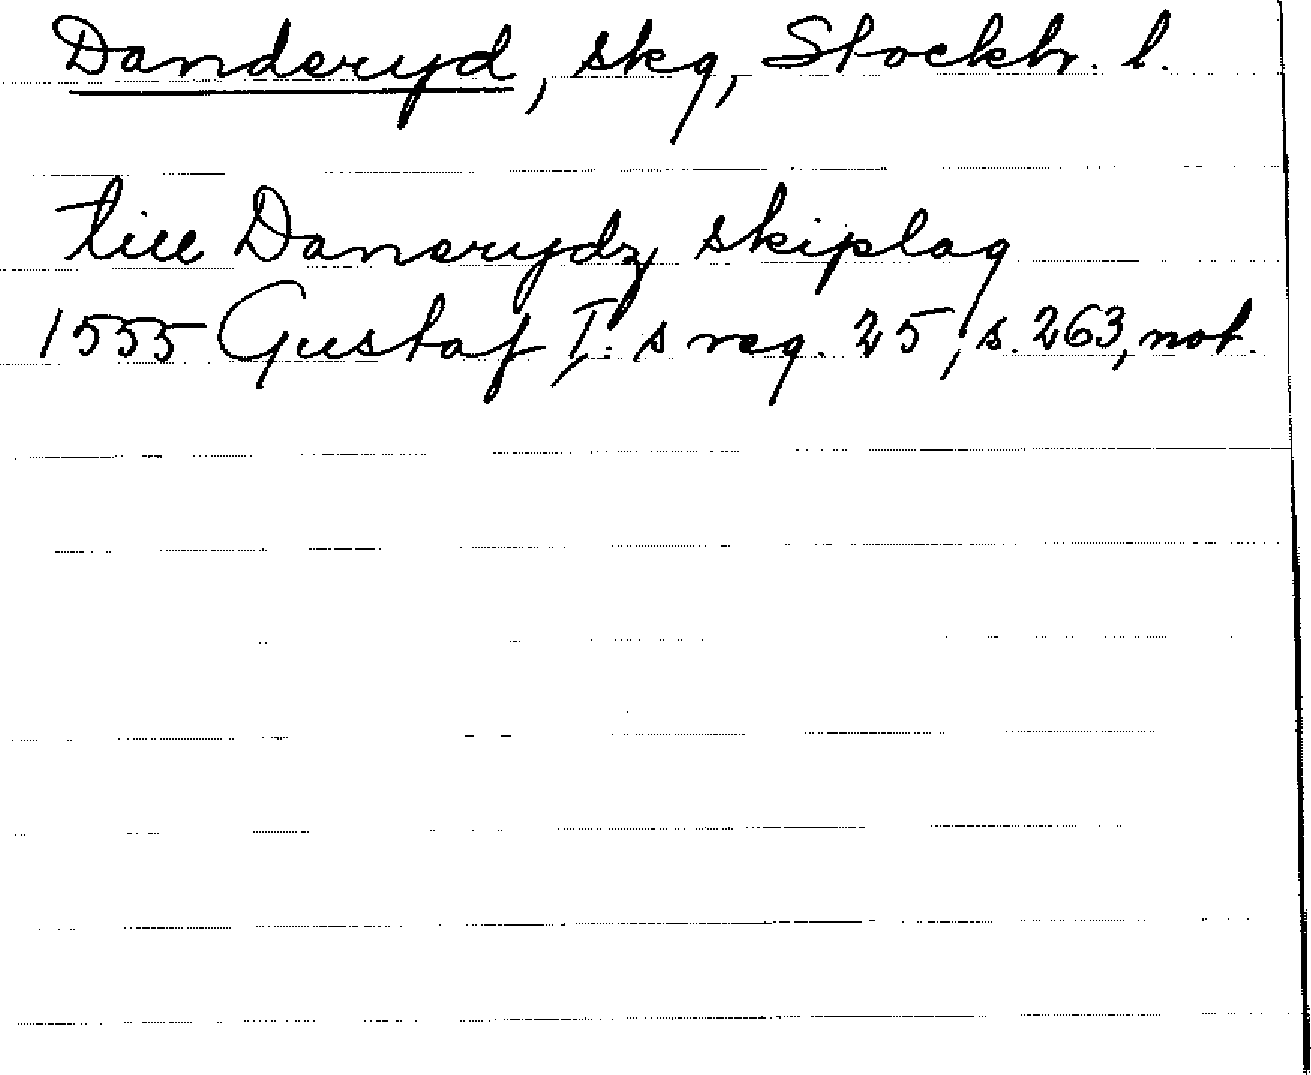 Danderyd, skg, Stockh. l.
till Danerydz skiplag
1555 Gustaf I:s reg. 25, s. 263, not.